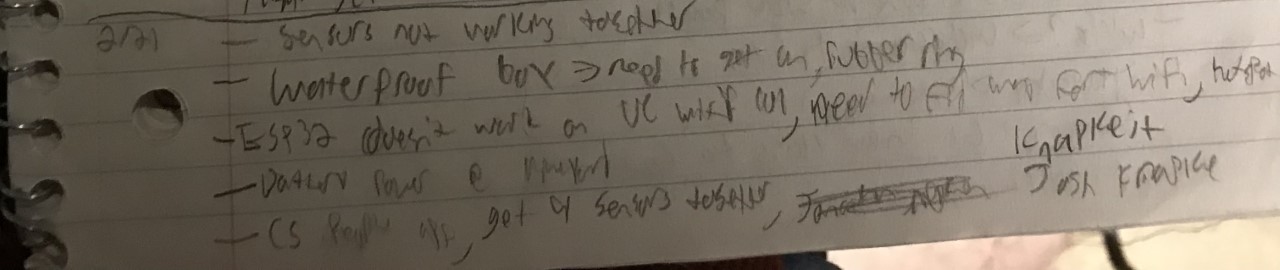 2/21 - Sensors not working together
- Waterproof box => need to get in, rubber
- ESP32 doesn't work on UC wifi, need to way for wifi, hotspot
- Battery Power @
Knapkeit
- CS get 4 sensors together, Josh Knapke